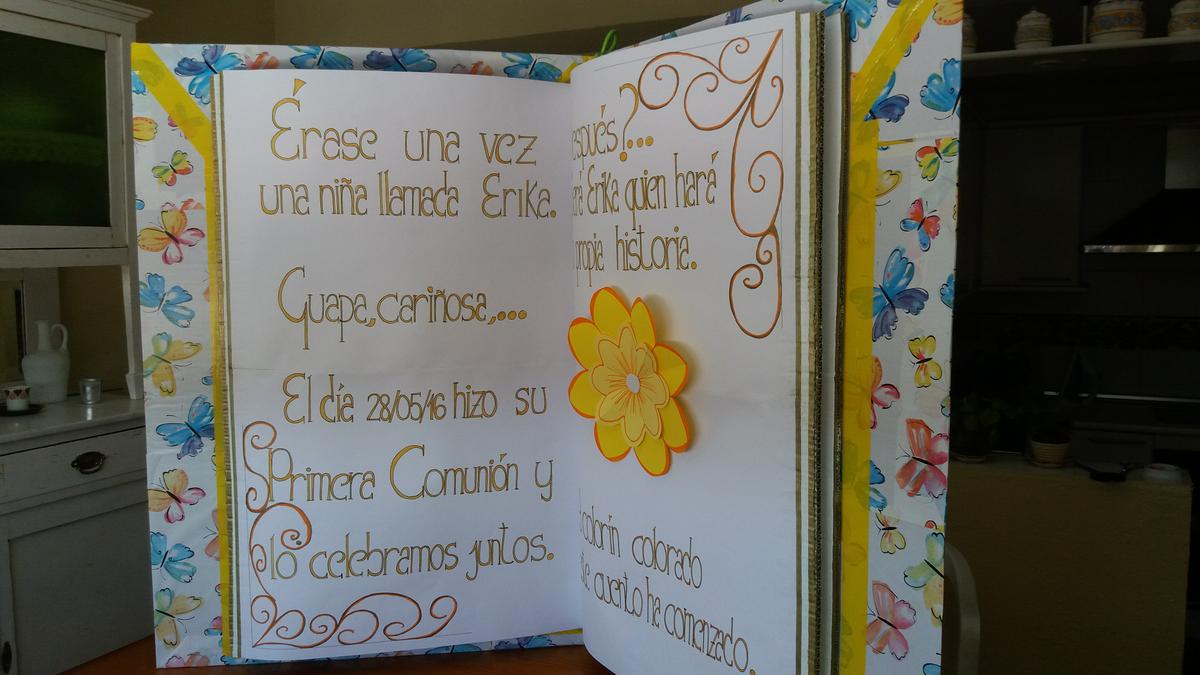 Érase una vez
una niña llamada Erika.
Guapa, cariñosa,...
El día 28/05/16 hizo su
Primera Comunión y
lo celebramos juntos.
espués?...
rá Erika quien hará
propia historia.
colorín colorado
te cuento ha comenzado.